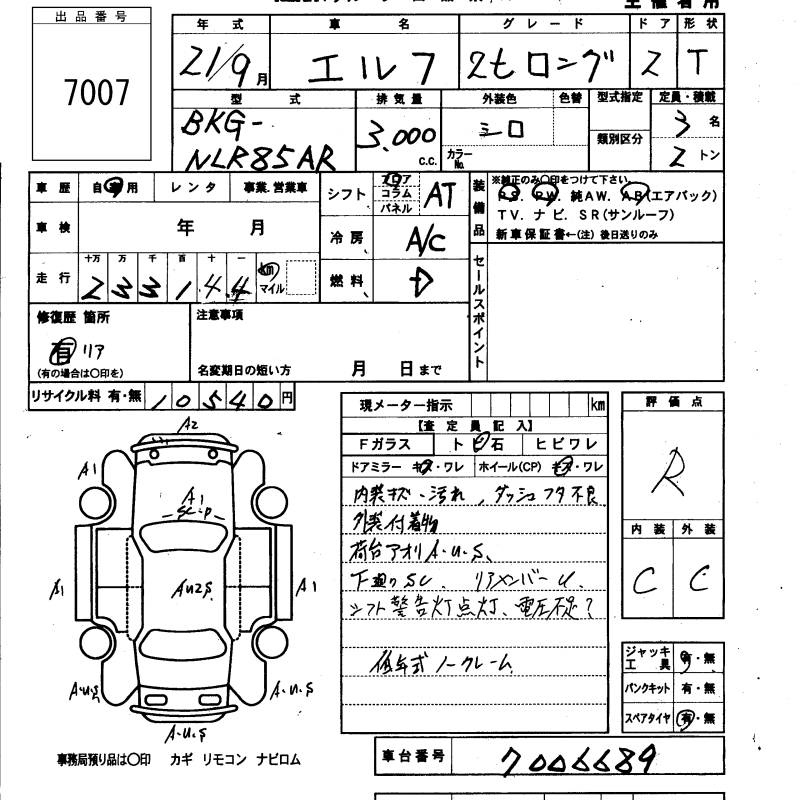 出品番号
7007
年式 車名 グレード ドア 形状
21/9月 エルフ 2tロング 2 T
型式 排気量 外装色 色替 型式指定 定員・積載
BKG-
NLR85AR 3.000 c.c. シロ カラーNo. 類別区分 3名
2トン
車歴 自家用 レンタ 事業.営業車
シフト フロア コラム パネル AT
装備品 ※純正のみ○印をつけて下さい。
PS. PW. 純AW. AB(エアバック)
TV. ナビ. SR(サンルーフ)
新車保証書←(注) 後日送りのみ
車検 年 月
冷房 A/C
走行 十万 万 千 百 十 一
2 3 3 1 4 4 km マイル
燃料 D
セールスポイント
修復歴 箇所
有 リア
(有の場合は○印を)
注意事項
名変期日の短い方 月 日まで
リサイクル料 有・無 10540円
現メーター指示 km
【査定員記入】
Fガラス トビ石 ヒビワレ
ドアミラー キズ・ワレ ホイール(CP) キズ・ワレ
内装キズ・汚れ、ダッシュフタ不良
外装付着物
荷台アオリA.U.S、
下廻りSC. リアメンバーU.
シフト警告灯点灯、電圧不足?
低年式ノークレーム
評価点
R
内装 外装
C C
ジャッキ
工具 有・無
パンクキット 有・無
スペアタイヤ 有・無
A2
A1
A1
SC・P
A1
AU2S
A1
A.U.S
A.U.S
A.U.S
事務局預り品は○印 カギ リモコン ナビロム
車台番号 7006689